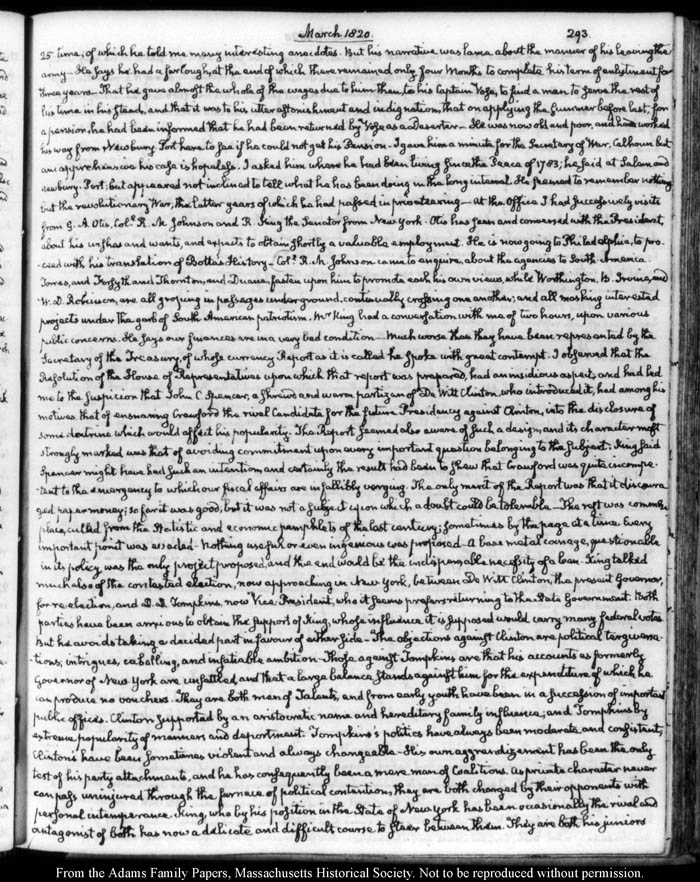 March 1820.
293.
25 time; of which he told me many interesting anecdotes. But his narrative was lame about the manner of his leaving the
army. He says he had a furlough, at the end of which there remained only four Months to complete his term of enlistment for
three years. That he gave almost the whole of the wages due to him then, to his Captain Vose, to find a man to serve the rest of
his time in his stead, and that it was to his utter astonishment and indignation, that on applying the summer before last, for
a pension, he had been informed that he had been returned by Vose as a Deserter. He was now old and poor, and had worked
his way from Newbury-Port here to see if he could not get his Pension. I gave him a minute for the Secretary of War, Calhoun but
am apprehensive his case is hopeless. I asked him where he had been living since the Peace of 1783; he said at Salem and
Newbury-Port; but appeared not inclined to tell what he has been doing in the long interval. He seemed to remember nothing
but the revolutionary War; the latter years of which he had passed in privateering. At the Office I had successively visits
from G. A. Otis, Coll. R. M. Johnson and R. King the Senator from New York. Otis has seen and conversed with the President,
about his wishes and wants, and expects to obtain shortly a valuable employment. He is now going to Philadelphia, to pro-
-ceed with his translation of Botta's History. Coll. R. M. Johnson came to enquire, about the agencies to South-America.
Torres, and Forsyth and Thornton, and Duane, fasten upon him to promote each his own views, while Worthington, B. Irvine, and
W. D. Robinson, are all groping in passages underground, continually crossing one another; and all mosking interested
projects under the garb of South American patriotism. Mr King had a conversation with me of two hours, upon various
public concerns. He says our finances are in a very bad condition. Much worse than they have been represented by the
Secretary of the Treasury, of whose currency Report as it is called he spoke with great contempt. I observed that the
Resolution of the House of Representatives upon which that report was prepared, had an insidious aspect, and had led
me to the suspicion that John C. Spencer, a shrewd and warm partizan of De Witt Clinton, who introduced it, had among his
motives that of ensnaring Crawford the rival Candidate for the future Presidency against Clinton, into the disclosure of
some doctrine which would affect his popularity. The Report seemed also aware of such a design, and its character most
strongly marked was that of avoiding commitment upon every important question belonging to the subject. King said
Spencer might have had such an intention, and certainly the result had been to shew that Crawford was quite incompe-
-tent to the emergency to which our fiscal affairs are infallibly verging. The only merit of the Report was that it discoura-
ged paper money; so far it was good, but it was not a subject upon which a doubt could be tolerable. The rest was common
place, culled from the Statistic and economic pamphlets of the last century; sometimes by the page at a time. Every
important point was evaded. Nothing useful or even ingenious was proposed. A base metal coinage, questionable
in its policy was the only project proposed, and the end would be the indispensable necessity of a loan. King talked
much also of the contested election, now approaching in New York, between De Witt Clinton, the present Governor,
for re-election, and D. D. Tompkins, now Vice-President, who it seems prefers returning to the State Government. Both
parties have been anxious to obtain the support of King, whose influence it is supposed would carry many federal votes
But he avoids taking a decided part in favour of either side. The objections against Clinton are political tergiversa-
-tions, intrigues, caballing, and insatiable ambition. Those against Tompkins are that his accounts as formerly
Governor of New York are unsettled, and that a large balance stands against him for the expenditure of which he
can produce no vouchers. They are both men of Talents, and from early youth have been in a succession of important
public offices. Clinton supported by an aristocratic name and hereditary family influence; and Tompkins by
extreme popularity of manners and deportment. Tompkins's politics have always been moderate and consistent;
Clinton's have been sometimes violent and always changeable. His own aggrandizement has been the only
test of his party attachments, and he has consequently been a mere man of Coalitions. As private character never
can pass uninjured through the furnace of political contention, they are both charged by their opponents with
personal intemperance. King, who by his position in the State of New York has been occasionally the rival and
antagonist of both has now a delicate and difficult course to steer between them. They are both his juniors
From the Adams Family Papers, Massachusetts Historical Society. Not to be reproduced without permission.